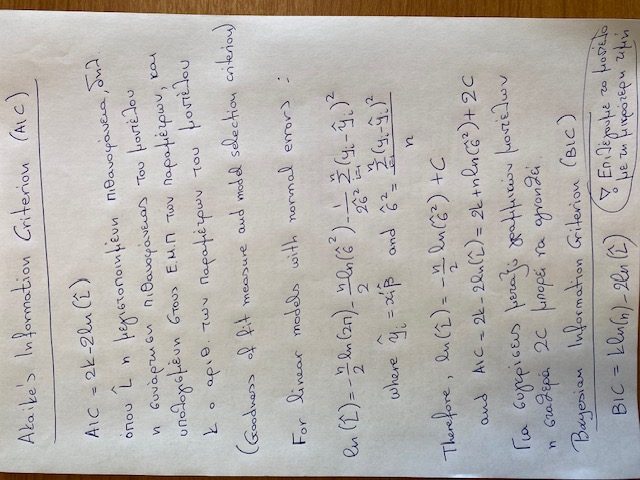 Akaike's Information Criterion (AIC)
AIC = 2k - 2ln(L̂)
όπου L̂ η μεγιστοποιημένη πιθανοφάνεια, δηλ.
η συνάρτηση πιθανοφάνειας του μοντέλου
υπολογισμένη στους Ε.Μ.Π των παραμέτρων, και
k ο αριθ. των παραμέτρων του μοντέλου
(Goodness of fit measure and model selection criterion)
For linear models with normal errors :
ln(L̂) = -n/2 ln(2π) - n/2 ln(σ̂²) - 1/2σ̂² Σⁿᵢ₌₁(yᵢ - ŷᵢ)²
where ŷᵢ = xᵢ'β̂ and σ̂² = Σⁿᵢ₌₁(yᵢ - ŷᵢ)²/n
Therefore, ln(L̂) = -n/2 ln(σ̂²) + C
and AIC = 2k - 2ln(L̂) = 2k + nln(σ̂²) + 2C
Για συγκρίσεις μεταξύ γραμμικών μοντέλων
η σταθερά 2C μπορεί να αγνοηθεί.
Bayesian Information Criterion (BIC)
BIC = kln(n) - 2ln(L̂)
Επιλέγουμε το μοντέλο
με τη μικρότερη τιμή